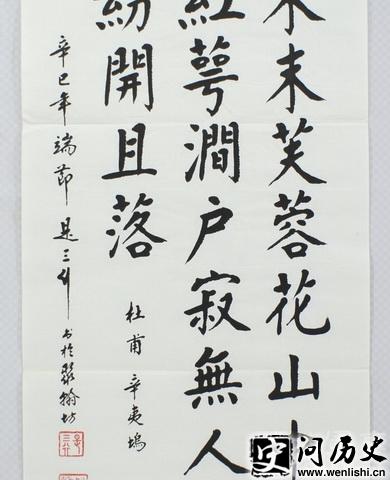 木末芙蓉花山中
紅萼澗戶寂無人
紛開且落
杜甫辛夷塢
辛巳年端節是三升书於翰坊
问历史
www.wenlishi.com